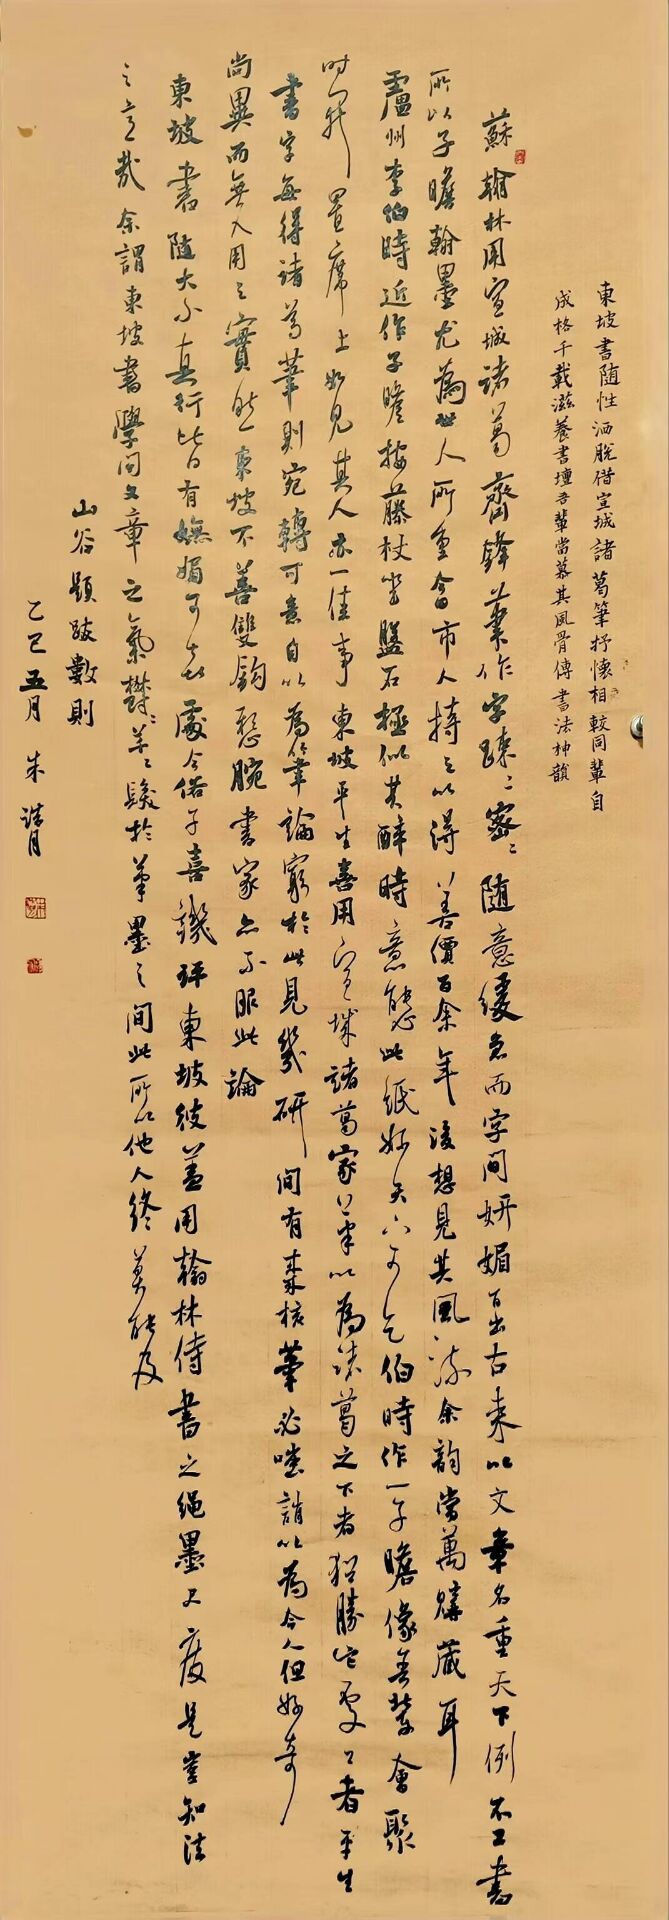 東坡書随性洒脫借宣城諸葛筆抒懷相較同輩自
成格千載滋養書壇吾輩當慕其風骨傳書法神韻
蘇翰林用宣城諸葛齊鋒筆作字疎疎密密随意緩急而字間妍媚百出古来以文章名重天下例不工書
所以子瞻翰墨尤為世人所重今日市人持之以得善價百余年後想見其風流余韵當萬購藏耳
廬州李伯時近作子瞻按藤杖坐盤石極似其醉時意態此紙妙天下可乞伯時作一子瞻像吾輩會聚
時開置席上如見其人亦一佳事東坡平生喜用宣城諸葛家筆以為諸葛之下者猶勝它處工者平生
書字每得諸葛筆則宛轉可意自以為筆論窮於此見幾研間有棗核筆必嗤誚以為今人但好奇
尚異而無入用之實然東坡不善雙鈎懸腕書家亦不服此論
東坡書随大小真行皆有嫵媚可喜處今俗子喜譏評東坡彼盖用翰林侍書之繩墨尺度是豈知法
之意哉余謂東坡書學問文章之氣鬱鬱芊芊發於筆墨之間此所以他人終莫能及
山谷題跋數則
乙巳五月 朱